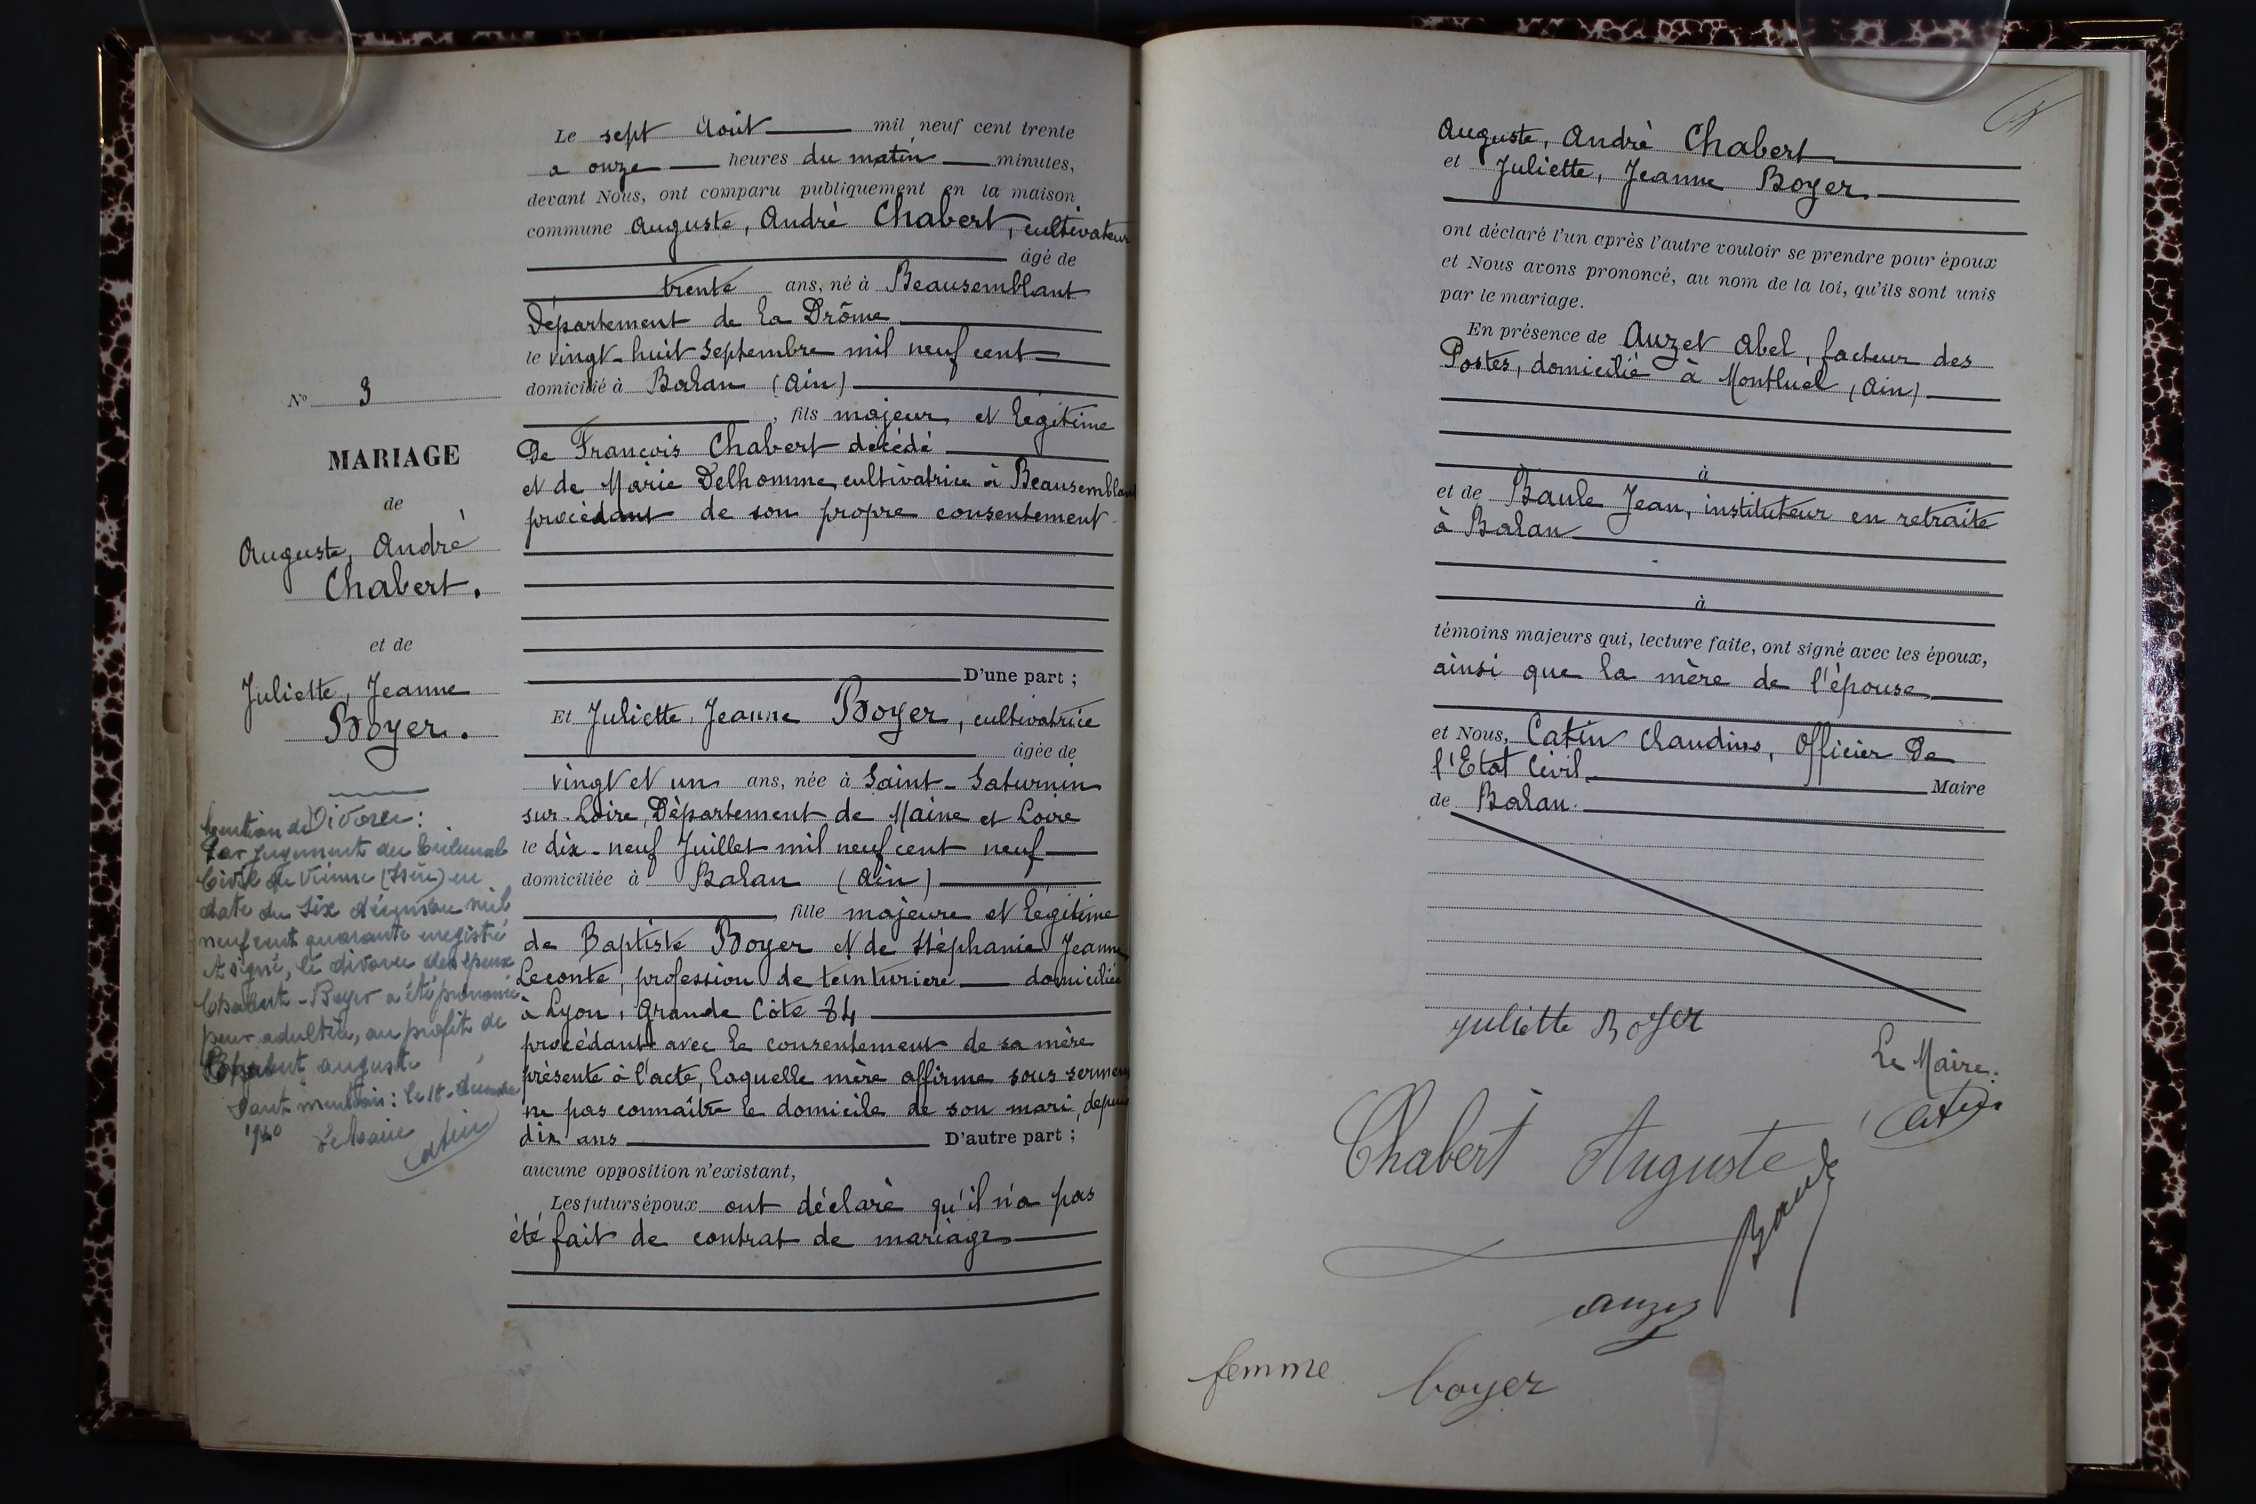 N° 3
MARIAGE
de
Auguste, André
Chabert.
et de
Juliette, Jeanne
Boyer.
Mention de Divorce :
Par jugement du tribunal
Civil de Vienne (Isère) en
date du six décembre mil
neuf cent quarante enregistré
et signé, le divorce des époux
Chabert-Boyer a été prononcé
pour adultère, au profit de
Chabert auguste
Dont mention : le 18 décembre
1940 Le Maire
Catin
Le sept Août mil neuf cent trente
a onze heures du matin minutes,
devant Nous, ont comparu publiquement en la maison
commune Auguste, André Chabert, cultivateur
âgé de
trente ans, né à Beausemblant
Département de la Drôme
le vingt-huit Septembre mil neuf cent
domicilié à Balan (Ain)
, fils majeur et légitime
De François Chabert décédé
et de Marie Delhomme, cultivatrice à Beausemblant
procédant de son propre consentement
D'une part ;
Et Juliette, Jeanne Boyer, cultivatrice
âgée de
vingt et un ans, née à Saint-Saturnin
sur-Loire, Département de Maine et Loire
le dix-neuf Juillet mil neuf cent neuf
domiciliée à Balan (Ain)
, fille majeure et légitime
de Baptiste Boyer et de Stéphanie Jeanne
Leconte, profession de teinturière domiciliée
à Lyon, Grande Côte 84
procédant avec le consentement de sa mère
présente à l'acte, laquelle mère affirme sous serment
ne pas connaître le domicile de son mari, depuis
dix ans D'autre part ;
aucune opposition n'existant,
Les futurs époux ont déclaré qu'il n'a pas
été fait de contrat de mariage
Auguste, André Chabert
et Juliette, Jeanne Boyer
ont déclaré l'un après l'autre vouloir se prendre pour époux
et Nous avons prononcé, au nom de la loi, qu'ils sont unis
par le mariage.
En présence de Auzet Abel, facteur des
Postes, domicilié à Montluel, (Ain)
à
et de Baule Jean, instituteur en retraite
à Balan
à
témoins majeurs qui, lecture faite, ont signé avec les époux,
ainsi que la mère de l'épouse
et Nous, Catin Claudius, Officier De
l'Etat Civil Maire
de Balan.
Juliette Boyer
Le Maire :
Catin
Chabert Auguste
Baule
Auzet
femme boyer